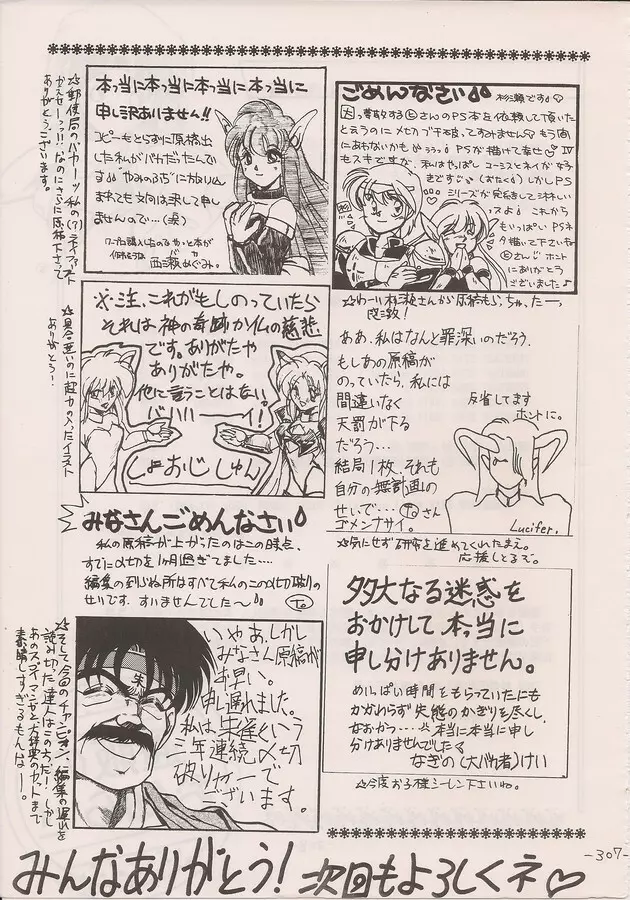 本っ当に本っ当に本っ当に本っ当に
申し訳ありません!!
コピーもとらずに原稿出
した私がバカだったんで
すみません…(涙)
西瀬めぐみ.
☆郵便局のバカーッ 私の(?)ラインファースト
かえせーっっ!! なのにさらに原稿下さって
ありがとうございます。
ごめんなさい
杉瀬です♡
もう間
にあわないかも
PSが描けて幸せ♡ Ⅳ
もスキですが、私はやっぱし ユーシスとネイが好
きです
(おたく) しかしPS
シリーズが完結をして淋しい
これから
もいっぱい PSネ
タ描いて下さいね
ホント
にありがとう
ございました♪
☆わーい 杉瀬さんから原稿もらっちゃったーっ
※注、これがもしのっていたら
それは神の奇跡か仏の慈悲
です。ありがたや
ありがたや。
他に言うことはない。
ババハハーイ!
しょおじしゅん
☆具合悪いのに超力の入ったイラスト
ありがとう!
ああ、私はなんと罪深いのだろう.
もしあの原稿が
のっていたら、私には
間違いなく
天罰が下る
だろう…
結局1枚、それも
自分の無計画の
せいで… Toさん
ゴメンナサイ。
反省してます
ホントに。
Lucifer.
☆気にせず研究を進めてくれたまえ。
応援しとるぞ。
みなさんごめんなさい
私の原稿が上がったのはこの時点、
すでに〆切を1ヶ月過ぎてました…
編集の到らぬ所はすべて私のこの〆切破りの
せいです. すいませんでした〜
To
多大なる迷惑を
おかけして 本当に
申し分けありません。
めいっぱい時間をもらっていたにも
かかわらず 失態のかぎりを尽くし、
なおかつ…本当に本当に申し
分けありませんでした
なぎの(大バカ者)けい
☆今度お子様シーレン下さいね。
朱
いやあ、しかし
みなさん原稿が
早い。
申し遅れました。
私は朱雀という
三年連続〆切
破りヤローで
ございます。
☆そして今回のチャンピオン、編集の遅れを
読み切った達人はこの方だ! しかし
あのスゴイマンガと大辞典のカットまで
素晴しすぎるもんなー。
みんなありがとう! 次回もよろしくネ♡
-307-